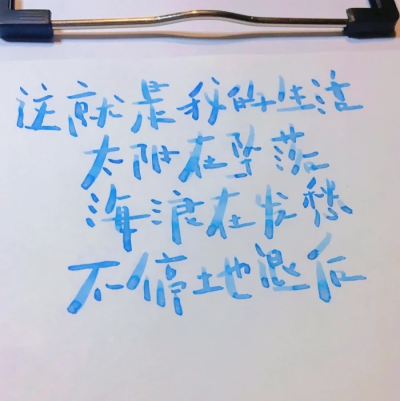 这就是我的生活
太阳在坠落
海浪在发愁
不停土地退后